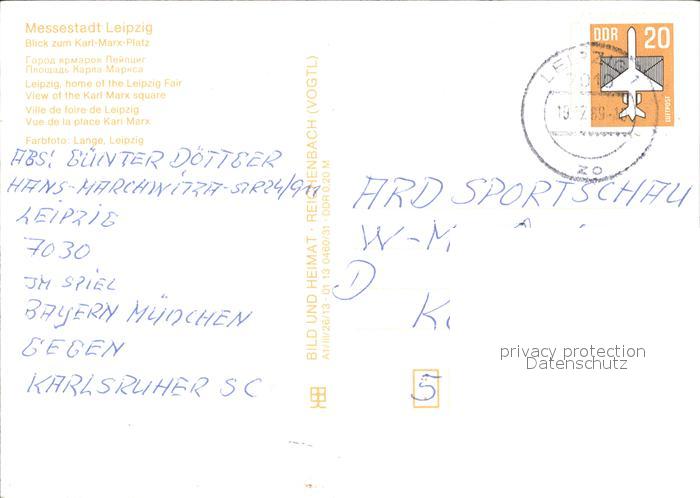 Messestadt Leipzig
Blick zum Karl-Marx-Platz
Город ярмарок Лейпциг
Площадь Карла-Маркса
Leipzig, home of the Leipzig Fair
View of the Karl Marx square
Ville de foire de Leipzig
Vue de la place Karl Marx
Farbfoto: Lange, Leipzig
ABS: GÜNTER DÖTTGER
HANS-MARCHWITZA-STR 24/911
LEIPZIG
7030
IM SPIEL
BAYERN MÜNCHEN
GEGEN
KARLSRUHER SC
BILD UND HEIMAT · REICHENBACH (VOGTL)
A1/III/26/13 · 01 13 0460/31 · DDR 0,20 M
DDR 20
LUFTPOST
LEIPZIG 7
7010
zo
ARD SPORTSCHAU
W-
D
5
privacy protection
Datenschutz